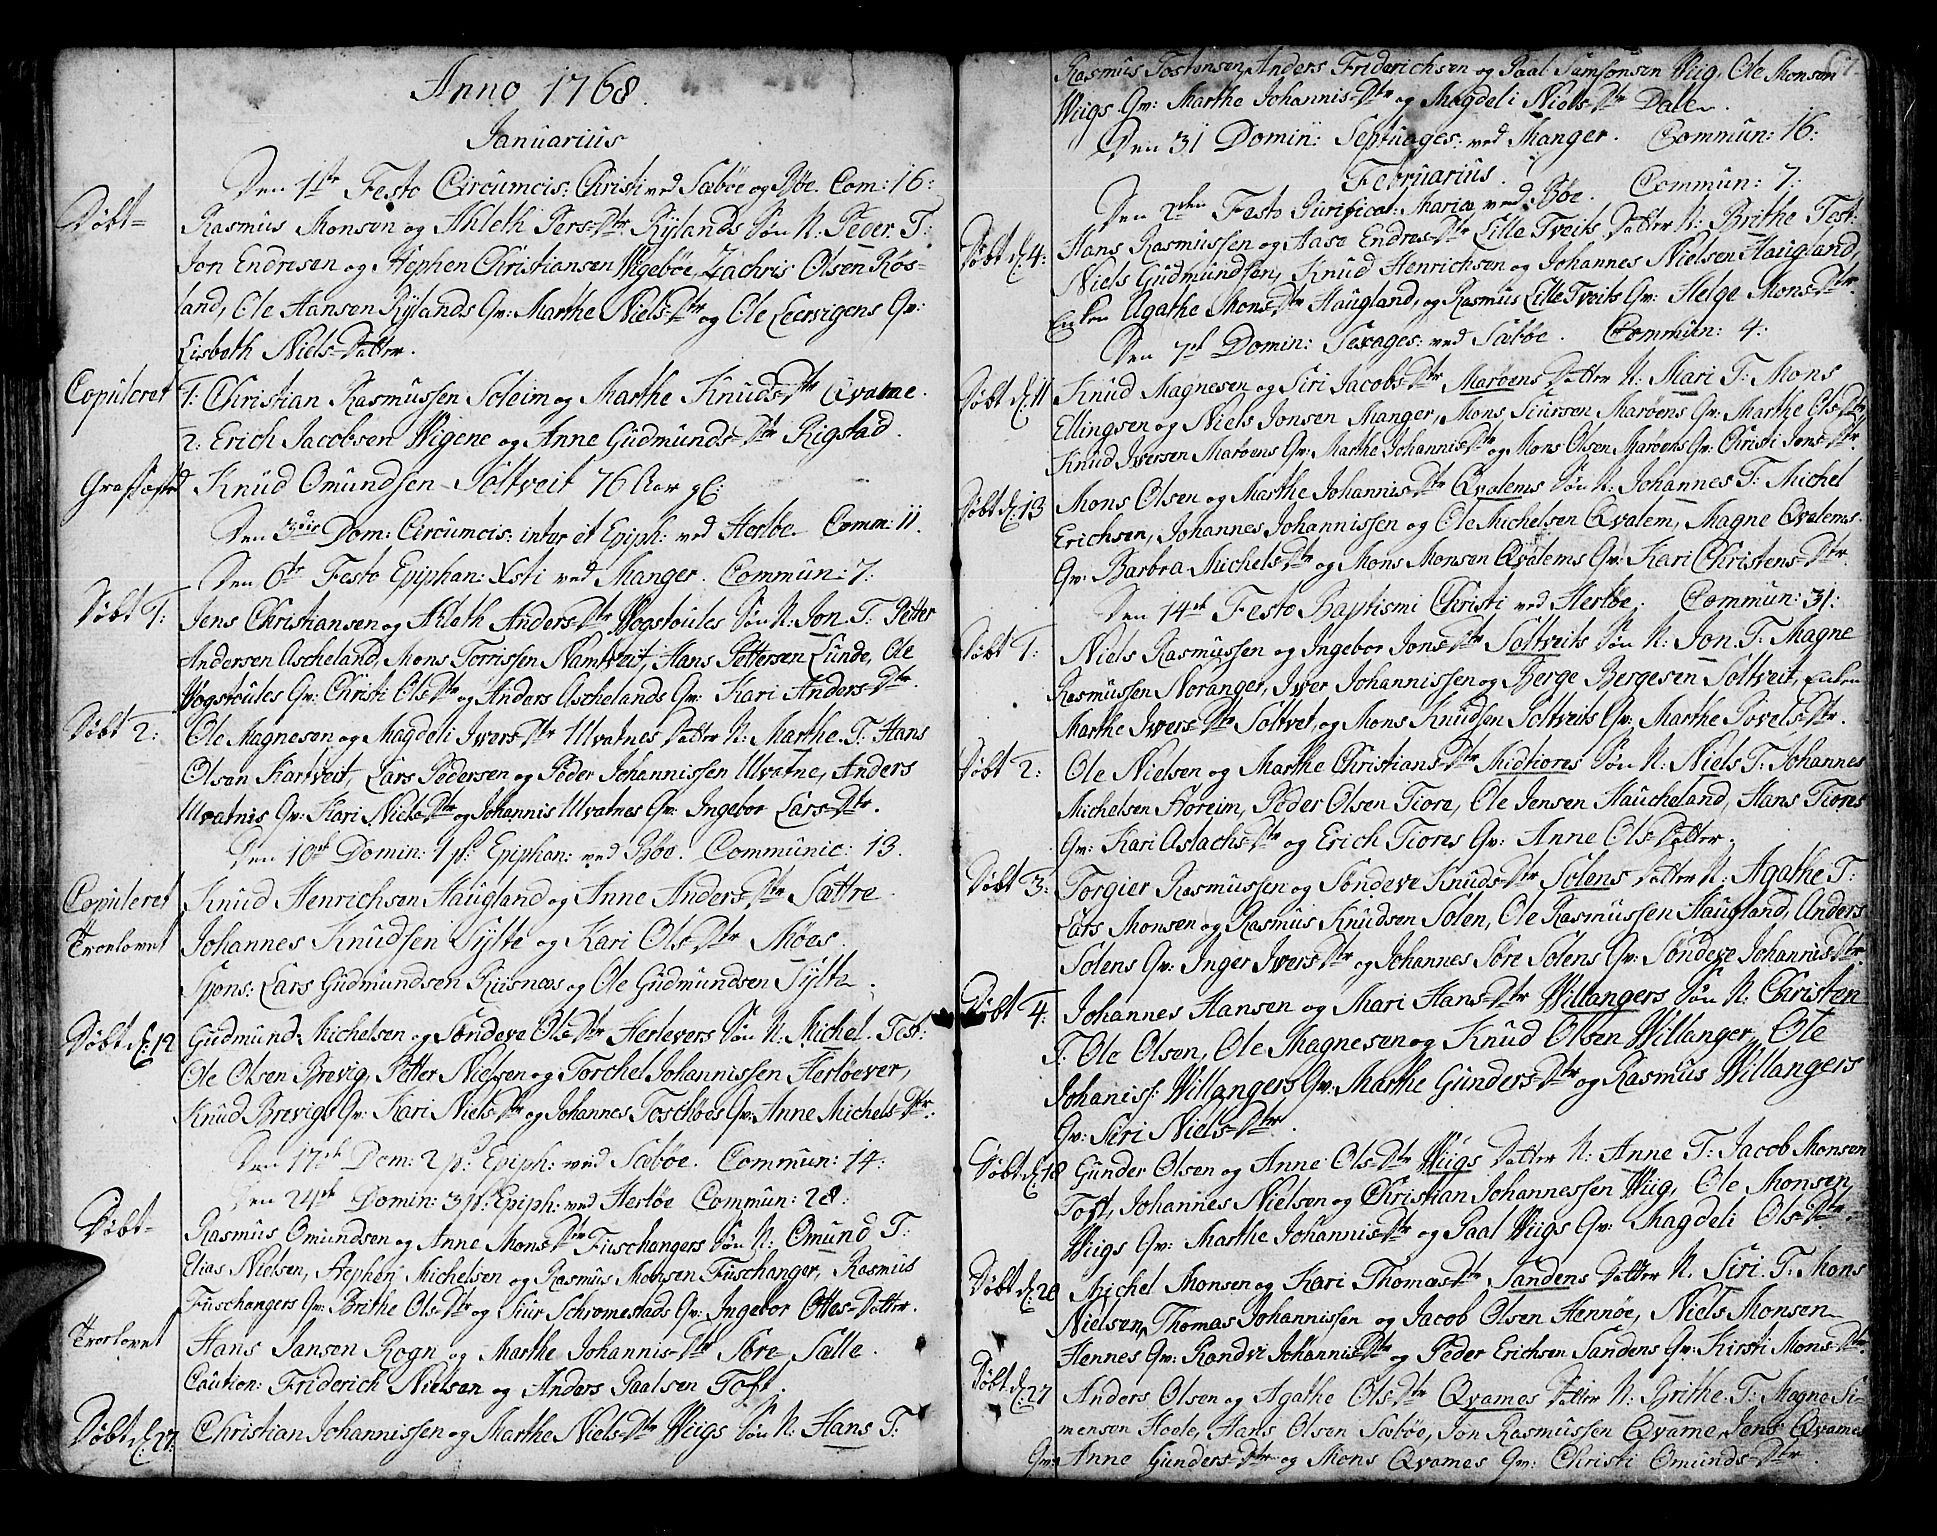 Anno 1768.
Januarius
Den 1ste Festo Circumcis: Christi ved Sæbøe og Bøe. Com: 16:
Døbt- Rasmus Monsen og Ahleth Pers-Dtr Rylands Søn N: Peder. T:
Jon Endresen og Stephen Christiansen Wigebøe, Zachris Olsen Røs-
land, Ole Hansen Rylands Qv: Marthe Niels-Dtr og Ole Leervigens Qv:
Lisbeth Niels-Datter.
Copuleret 1: Christian Rasmussen Soleim og Marthe Knuds-Dtr Qvatne.
2: Erich Jacobsen Wigene og Anne Gudmunds-Dtr Rigstad.
Graffæsted Knud Omundsen Soltveit 76 Aar gl:
Den 3die Dom: Circumcis: inter et Epiph: ved Herløe. Comm: 11.
Den 6te Festo Epiphan: Xsti ved Manger. Commun: 7:
Døbt 1: Jens Christiansen og Ahleth Anders-Dtr Wogstoules Søn N: Jon. T: Petter
Andersen Ascheland, Mons Torrissen Namtveit, Hans Pettersen Lunde, Ole
Wogstoules Qv: Christi Ols-Dtr og Anders Aschelands Qv: Kari Anders-Dtr.
Døbt 2: Ole Magnesen og Magdeli Ivers-Dtr Ulvatnes Datter N: Marthe. T: Hans
Olsen Kartveit, Lars Pedersen og Peder Johannissen Ulvatne, Anders
Ulvatnis Qv: Kari Niels-Dtr og Johannis Ulvatnes Qv: Ingebor Lars-Dtr.
Den 10de Domin: 1 p: Epiphan: ved Bøe. Communic: 13.
Copuleret Knud Henrichsen Haugland og Anne Anders-Dtr Sættre.
Troelovet Johannes Knudsen Sylte og Kari Ols-Dtr Møes.
Spons: Lars Gudmundsen Riisnæs og Ole Gudmundsen Sylte.
Døbt d: 12 Gudmund Michelsen og Søndeve Ols-Dtr Herlevers Søn N: Michel. Test:
Ole Olsen Brevig, Petter Nielsen og Torchel Johannissen Herløever,
Knud Brevigs Qv: Kari Niels-Dtr og Johannes Toscheøes Qv: Anne Michels-Dtr:
Den 17de Dom: 2 p: Epiph: ved Sæbøe. Commun: 14:
Den 24de Domin: 3 p: Epiph: ved Herløe Commun: 28:
Døbt- Rasmus Omundsen og Anne Mons-Dtr Fuschangers Søn N: Omund T:
Elias Nielsen, Stephen Michelsen og Rasmus Monsen Fuschanger, Rasmus
Fuschangers Qv: Brithe Ols-Dtr og Siur Schromestads Qv: Ingebor Ottes-Datter.
Troelovet Hans Jansen Rogn og Marthe Johannis-Dtr Søre Sælle.
Caution: Friderich Nielsen og Anders Paalsen Toft.
Døbt d: 27: Christian Johannissen og Marthe Niels-Dtr Wiigs Søn N: Hans T:
Rasmus Tostensen, Anders Friderichsen og Paal Samsonsen Wiig, Ole Monsen
Wiigs Qv: Marthe Johannis-Dtr og Magdeli Niels-Dtr Dale.
Den 31 Domin: Septuages: ved Manger. Commun: 16:
Februarius.
Den 2den Festo Purificat: Mariæ ved Bøe. Commun: 7:
Døbt d: 4: Hans Rasmussen og Aase Endres-Dtr Lille Tveits Datter N: Brithe Test:
Niels Gudmundsen, Knud Henrichsen og Johannes Nielsen Haugland,
Enken Agathe Mons-Dtr Haugland, og Rasmus Lille Tveits Qv: Helge Mons-Dtr.
Den 7de Domin: Sexages: ved Sæbøe. Commun: 4:
Døbt d: 11 Knud Magnesen og Siri Jacobs-Dtr Marøens Datter N: Mari T: Mons
Ellingsen og Niels Jonsen Manger, Mons Siursen Marøens Qv: Marthe Ols-Dtr,
Knud Iversen Marøens Qv: Marthe Johannis-Dtr og Mons Olsen Marøens Qv: Christi Jons-Dtr.
Døbt d: 13 Mons Olsen og Marthe Johannis-Dtr Qvalems Søn N: Johannes T: Michel
Erichsen, Johannes Johannissen og Ole Michelsen Qvalem, Magne Qvalems
Qv: Barbra Michels-Dtr og Mons Monsen Qvalems Qv: Kari Christens-Dtr.
Den 14de Festo Baptismi Christi ved Herløe. Commun: 31:
Døbt 1: Niels Rasmussen og Ingebor Jons-Dtr Soltveits Søn N: Jon T: Magne
Rasmussen Noranger, Iver Johannissen og Berge Bergesen Soltveit, Enken
Marthe Ivers-Dtr Soltvet, og Mons Knudsen Soltveits Qv: Marthe Povels-Dtr.
Døbt 2: Ole Nielsen og Marthe Christians-Dtr Midtiores Søn N: Niels T: Johannes
Michelsen Floreim, Peder Olsen Tiore, Ole Jensen Haucheland, Hans Tiores
Qv: Kari Aslachs-Dtr og Erich Tiores Qv: Anne Ols-Datter.
Døbt 3: Torgier Rasmussen og Søndeve Knuds-Dtr Solens Datter N: Agathe T:
Lars Monsen og Rasmus Knudsen Solen, Ole Rasmussen Haugland, Anders
Solens Qv: Inger Ivers-Dtr og Johannes Søre Solens Qv: Søndeve Johannis-Dtr.
Døbt 4: Johannes Hansen og Mari Hans-Dtr Willangers Søn N: Christen
T: Ole Olsen, Ole Magnesen og Knud Olsen Willanger, Ole
Johaniss: Willangers Qv: Marthe Gunders-Dtr og Rasmus Willangers
Qv: Siri Niels-Dtr.
Døbt d: 18 Gunder Olsen og Anne Ols-Dtr Wiigs Datter N: Anne T: Jacob Monsen
Toft, Johannes Nielsen og Christian Johannessen Wiig, Ole Monsen
Wiigs Qv: Marthe Johannis-Dtr og Paal Wiigs Qv: Magdeli Ols-Dtr.
Døbt d: 20 Michel Monsen og Kari Thomæs-Dtr Sandens Datter N: Siri. T: Mons
Nielsen, Thomas Johannissen og Jacob Olsen Hennøe, Niels Monsen
Hennes Qv: Randvi Johannis-Dtr og Peder Erichsen Sandens Qv: Kirsti Mons-Dtr.
Døbt d: 27 Anders Olsen og Agathe Ols-Dtr Qvames Datter N: Brithe. T: Magne Si-
mensen Hoele, Hans Olsen Sæbøe, Jon Rasmussen Qvame, Jens Qvames
Qv: Anne Gunders-Dtr og Mons Qvames Qv: Christi Omunds-Dtr.